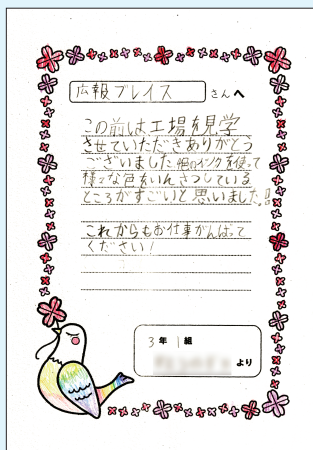 広報プレイス さんへ
この前は工場を見学
させていただきありがとう
ございました。4色のインクを使って
様々な色をいんさつしている
ところがすごいと思いました!!
これからもお仕事がんばって
ください!
3年1組
より